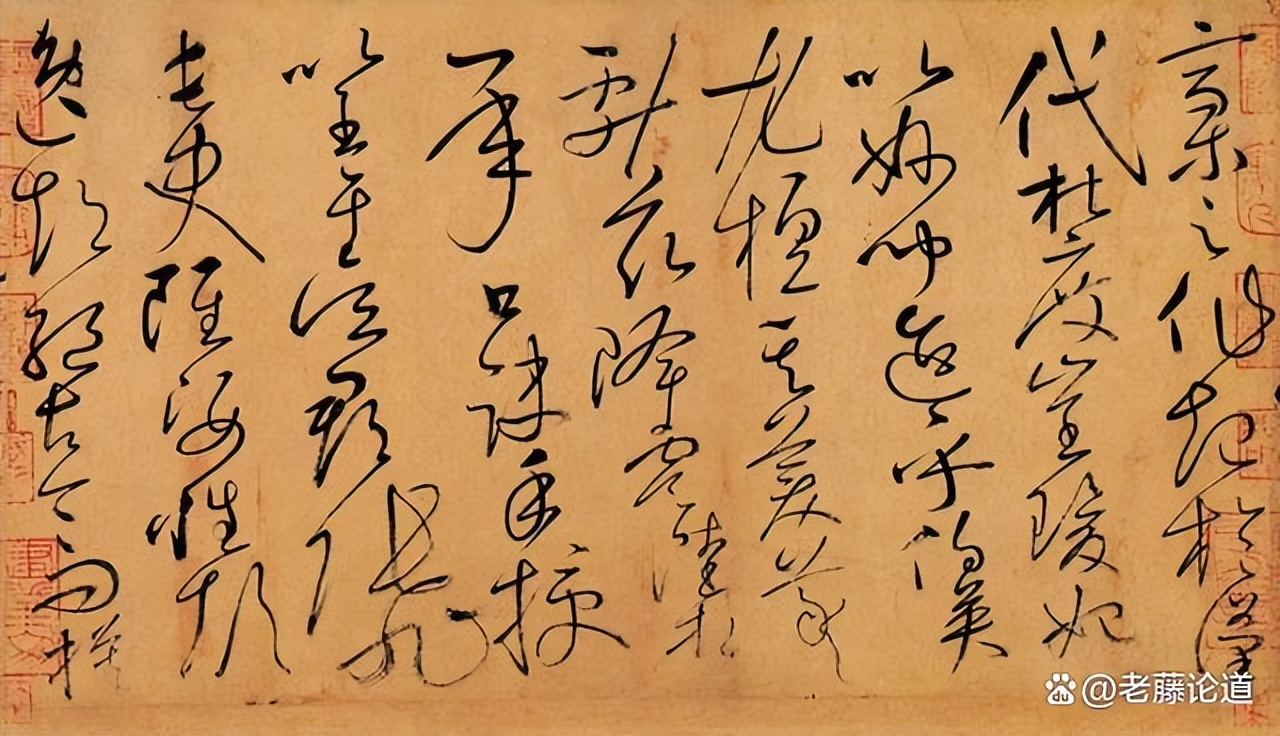 稾之作起於漢
代杜度崔瑗始
以妙聞迨乎伯英
尤擅其美羲
獻茲降虞陸相
承口訣手授
以至于吳郡張旭
長史雖姿性顛
逸超絕古今而模
@老藤论道